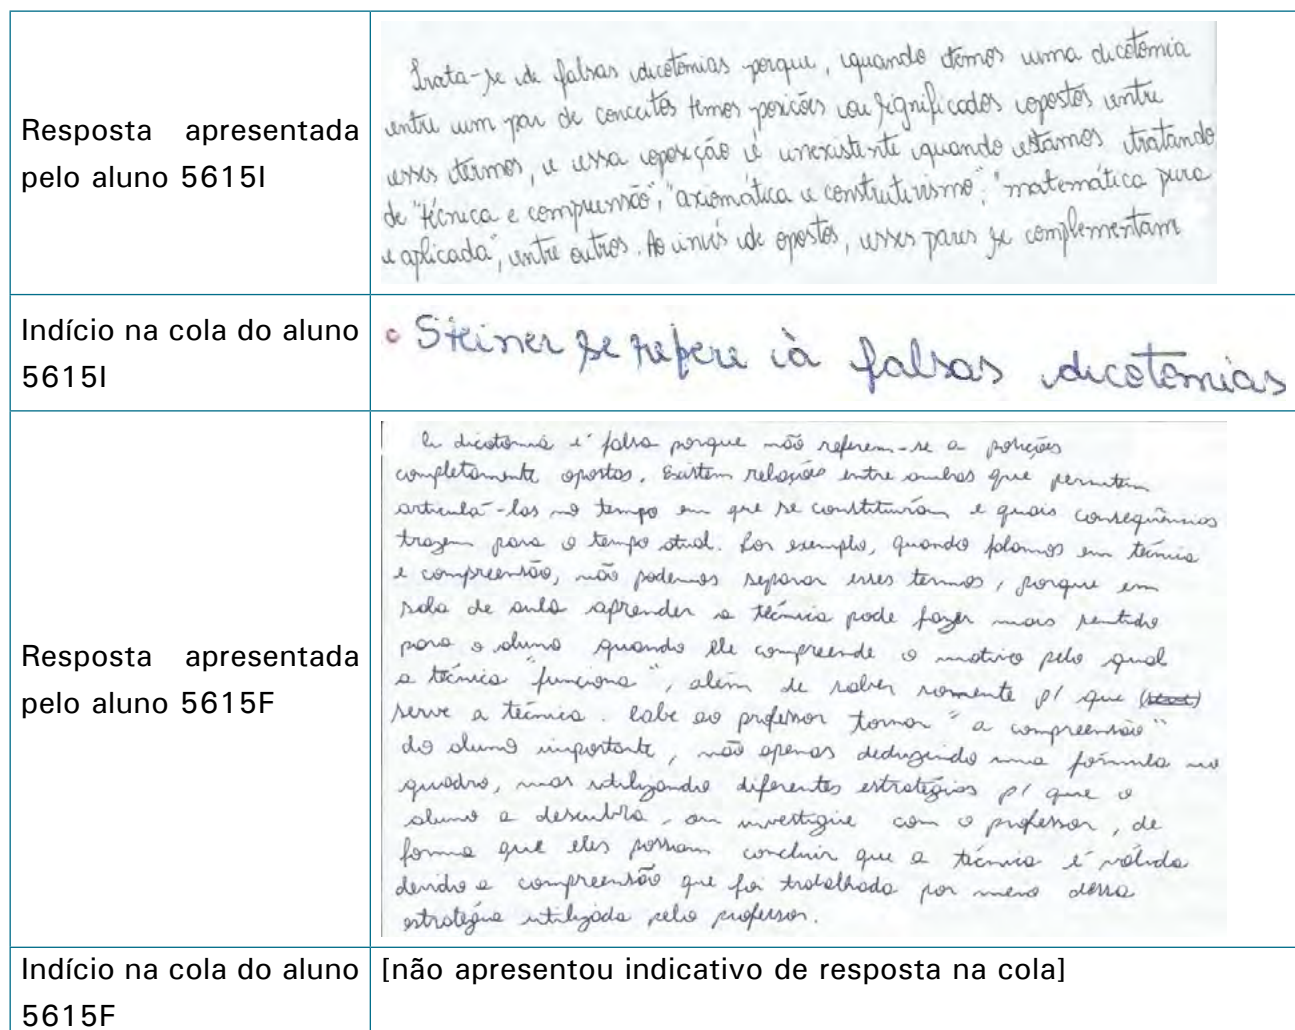 Resposta apresentada
pelo aluno 5615I
Trata-se de falsas dicotômias porque, quando temos uma dicotômia
entre um par de conceitos temos posições ou significados opostos entre
esses termos, e essa oposição é inexistente quando estamos tratando
de "técnica e compreensão", "axiomática e construtivismo", "matemática pura
e aplicada", entre outros. Ao invés de opostos, esses pares se complementam
Indício na cola do aluno
5615I
• Steiner se refere à falsas dicotomias
Resposta apresentada
pelo aluno 5615F
A dicotomia é falsa porque não referem-se a posições
completamente opostas. Existem relações entre ambas que permitem
articulá-las no tempo em que se constituíram e quais consequências
trazem para o tempo atual. Por exemplo, quando falamos em técnica
e compreensão, não podemos separar esses termos, porque em
sala de aula aprender a técnica pode fazer mais sentido
para o aluno quando ele compreende o motivo pelo qual
a técnica "funciona", além de saber somente p/ que
serve a técnica. Cabe ao professor tornar "a compreensão"
do aluno importante, não apenas deduzindo uma fórmula no
quadro, mas utilizando diferentes estratégias p/ que o
aluno a descubra, ou investigue com o professor, de
forma que eles possam concluir que a técnica é válida
devido a compreensão que foi trabalhada por meio dessa
estratégia utilizada pelo professor.
Indício na cola do aluno
5615F
[não apresentou indicativo de resposta na cola]